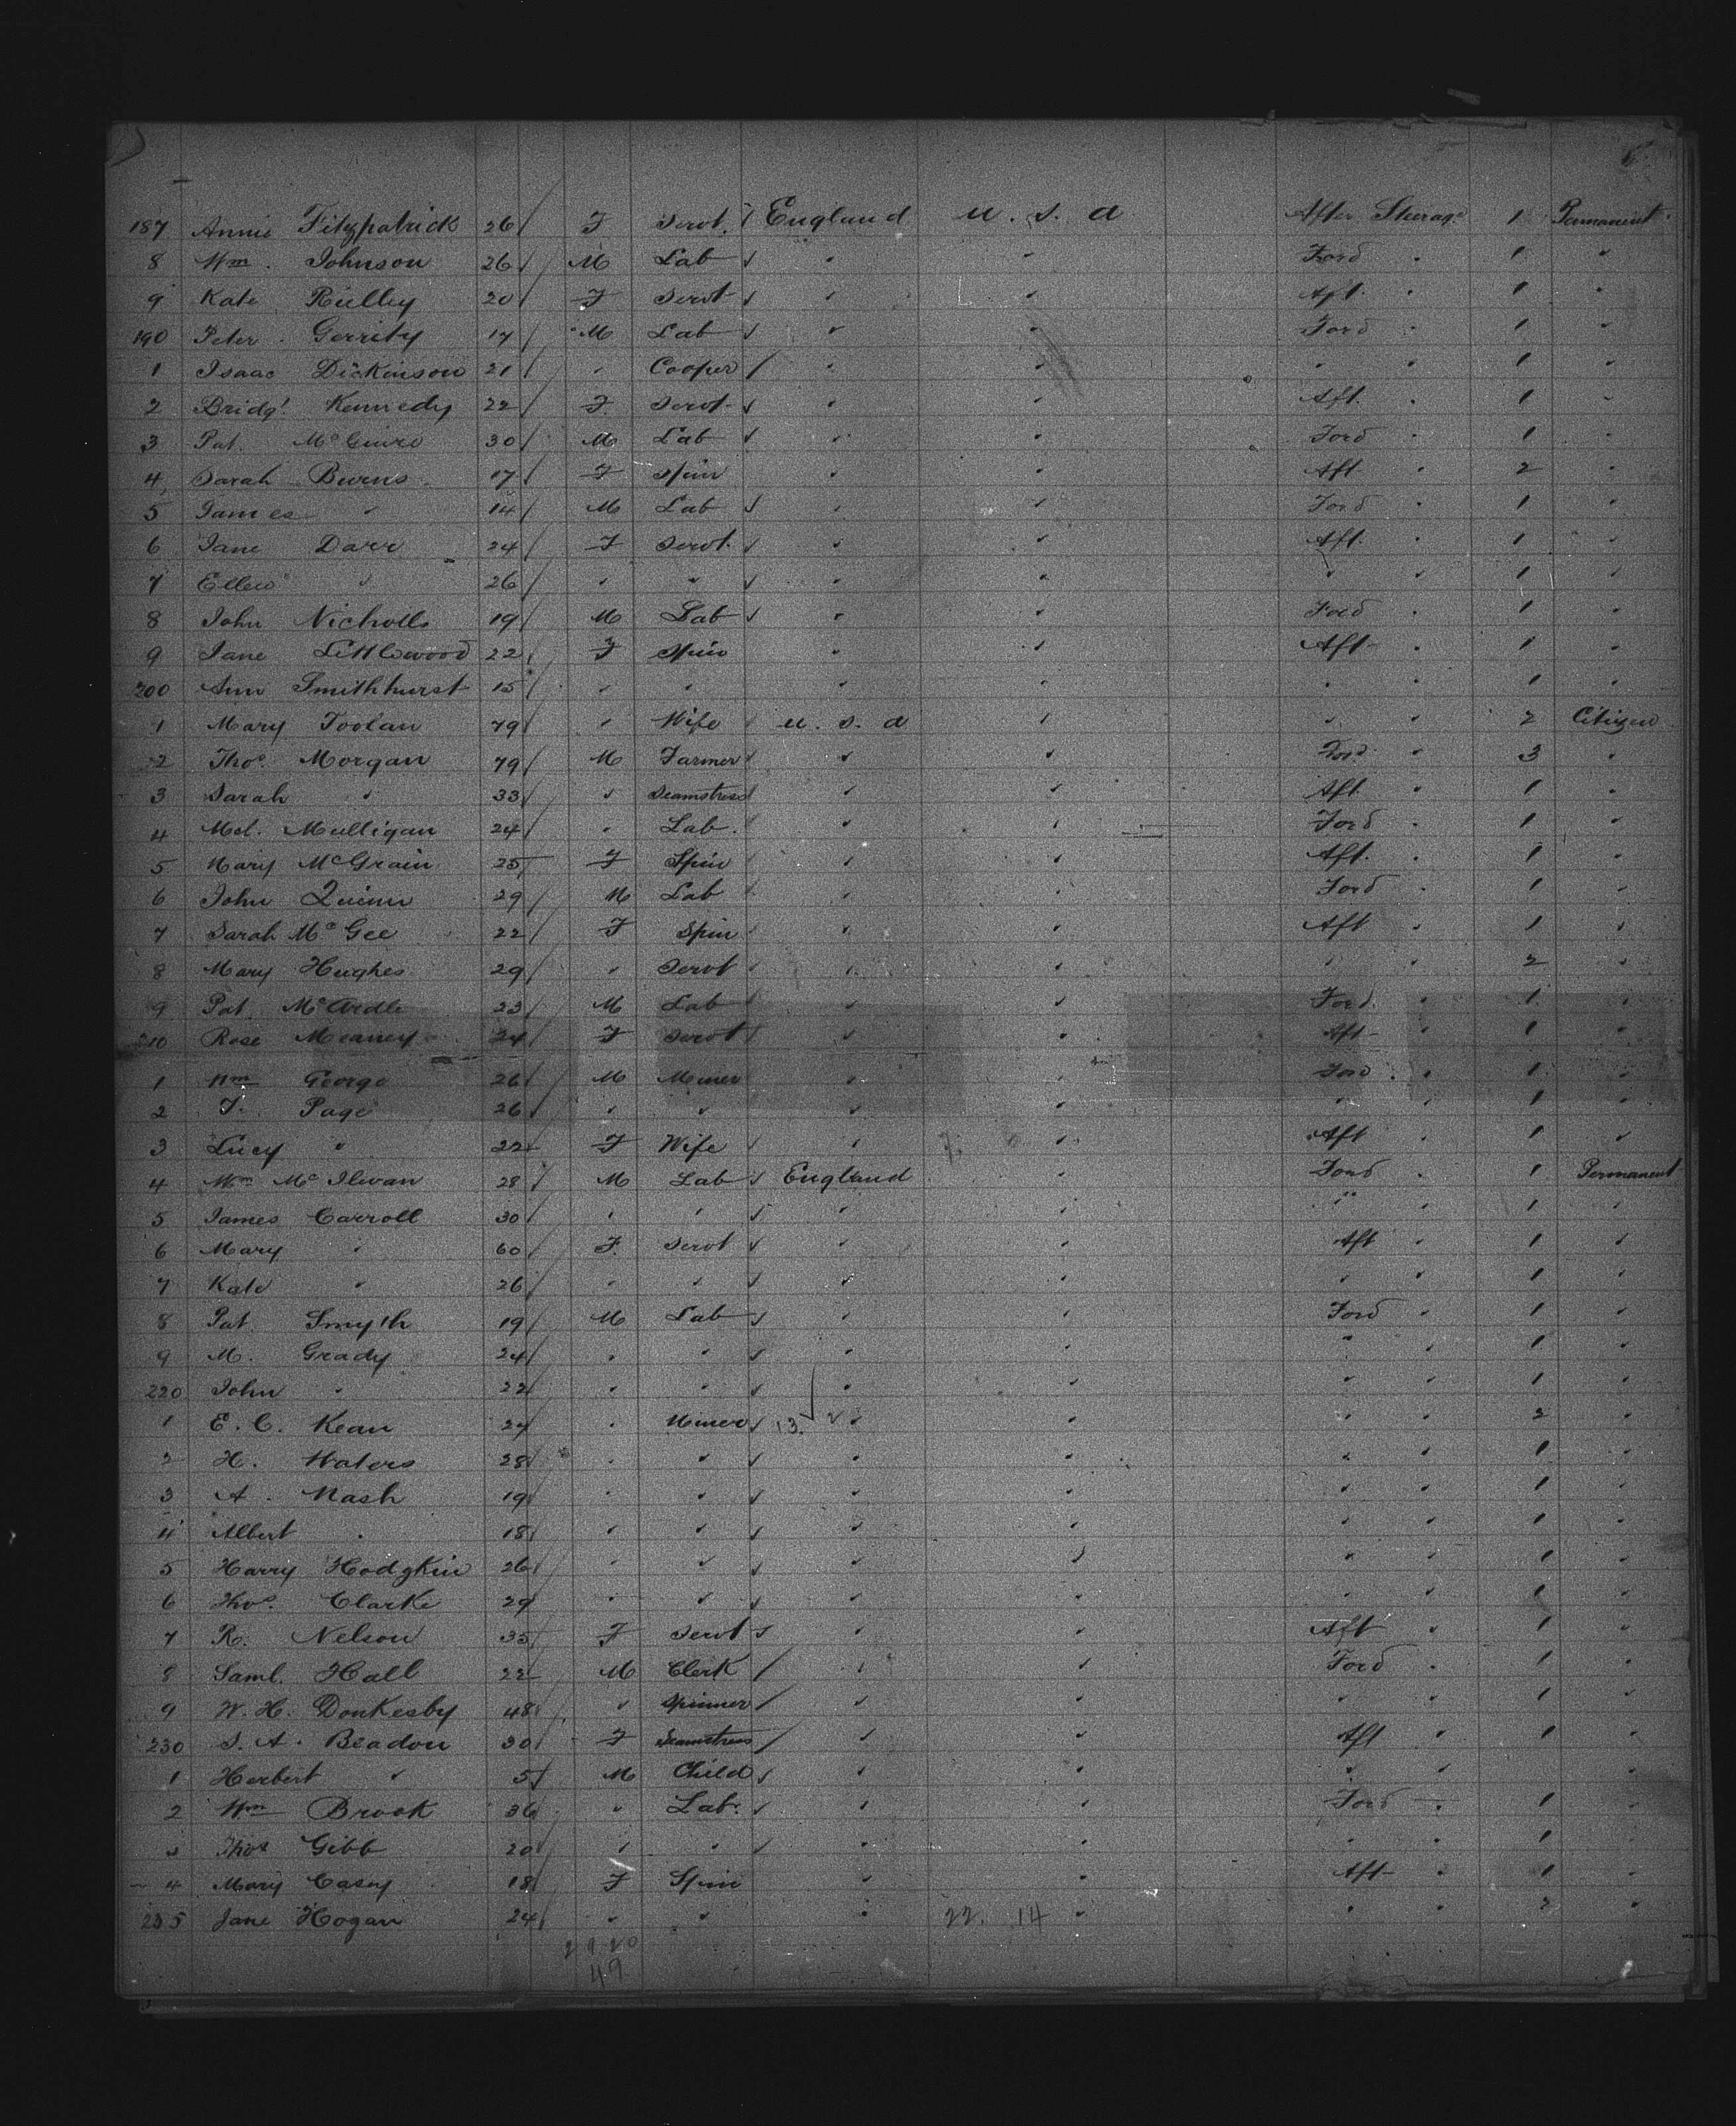 187 Annie Fitzpatrick 26 F Servt. England U. S. A After Steerage 1 Permanent
8 Wm. Johnson 26 M Lab " " Ford " 1 "
9 Kate Rielley 20 F Servt " " Aft. " 1 "
190 Peter Gerrity 17 M Lab " " Ford " 1 "
1 Isaac Dickinson 21 " Cooper " " " " 1 "
2 Bridgt. Kennedy 22 F Servt. " " Aft. " 1 "
3 Pat. McGuire 30 M Lab " " Ford " 1 "
4 Sarah Burns 17 F Spin " " Aft " 2 "
5 James " 14 M Lab " " Ford " 1 "
6 Jane Darr 24 F Servt. " " Aft. " 1 "
7 Ellen " 26 " " " " " " 1 "
8 John Nicholls 19 M Lab " " Ford " 1 "
9 Jane Littlewood 22 F Spin " " Aft " 1 "
200 Ann Smithhurst 15 " " " " " " 1 "
1 Mary Toolan 79 " Wife U. S. A " " " 2 Citizen
2 Thos. Morgan 79 M Farmer " " Ford " 3 "
3 Sarah " 33 " Seamstress " " Aft " 1 "
4 Mcl. Mulligan 24 " Lab. " " Ford " 1 "
5 Mary McGrain 25 F Spin " " Aft. " 1 "
6 John Quinn 29 M Lab " " Ford " 1 "
7 Sarah McGee 22 F Spin " " Aft " 1 "
8 Mary Hughes 29 " Servt " " " " 2 "
9 Pat. McArdle 23 M Lab " " Ford. " 1 "
210 Rose Meaney 24 F Servt " " Aft " 1 "
1 Wm George 26 M Miner " " Ford. " 1 "
2 T. Page 26 " " " " " " 1 "
3 Lucy " 22 F Wife " " Aft " 1 "
4 Wm McIlwan 28 M Lab England " Ford " 1 Permanent
5 James Carroll 30 " " " " " 1 "
6 Mary " 60 F. Servt " " Aft " 1 "
7 Kate " 26 " " " " " " 1 "
8 Pat. Smyth 19 M Lab " " Ford " 1 "
9 M. Grady 24 " " " " " " 1 "
220 John " 22 " " " " " " 1 "
1 E. C. Kean 24 " Miner 13. " " " " 2 "
2 H. Waters 28 " " " " " " 1 "
3 A. Nash 19 " " " " " " 1 "
4 Albert " 18 " " " " " " 1 "
5 Harry Hodgkin 26 " " " " " " 1 "
6 Thos. Clarke 29 " " " " " " 1 "
7 R. Nelson 35 F Servt " " Aft " 1 "
8 Saml. Hall 22 M Clerk " " Ford " 1 "
9 W. H. Donkesby 48 " Spinner " " " " 1 "
230 S. A. Beadon 30 F Seamstress " " Aft " 1 "
1 Herbert " 5 M Child " " " " "
2 Wm Brook 36 " Lab. " " Ford " 1 "
3 Thos Gibb 20 " " " " " " 1 "
4 Mary Casey 18 F Spin " " Aft " 1 "
235 Jane Hogan 24 " " " 22. 14 " " " 2 "
29 20
49